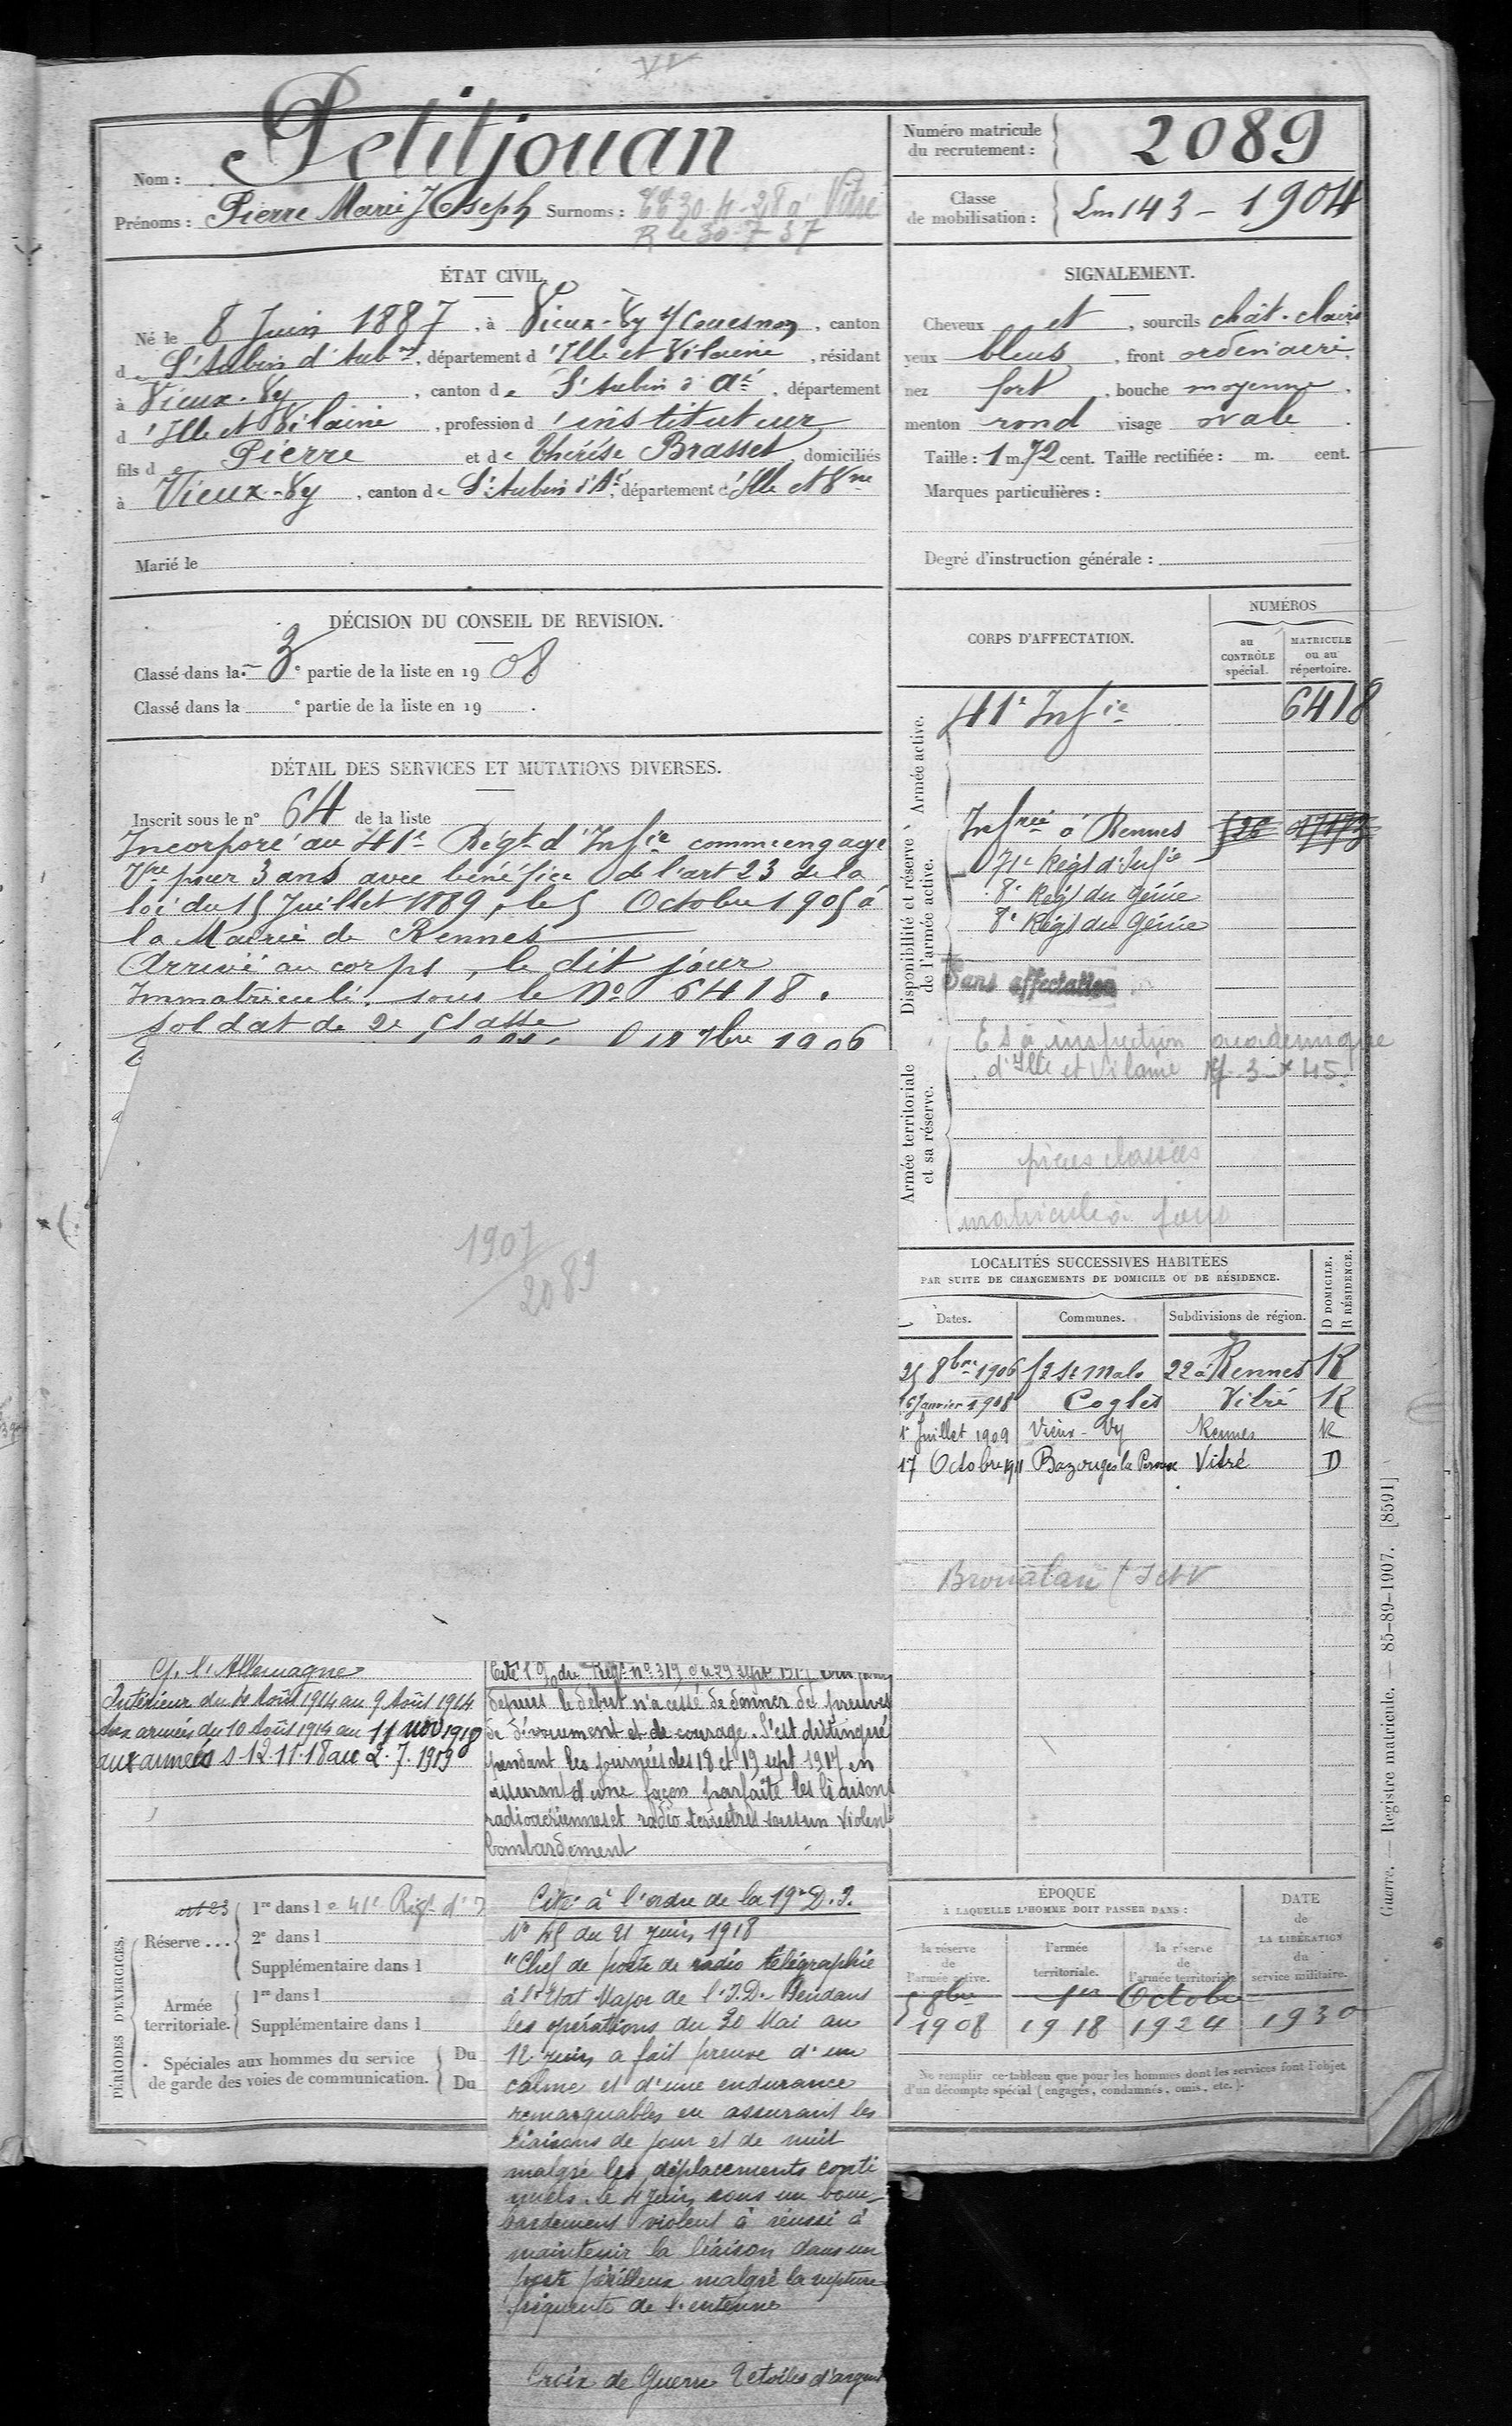 Nom : Petitjouan
Prénoms : Pierre Marie Joseph Surnoms :
R le 30-7-37
Numéro matricule du recrutement : 2089
Classe de mobilisation : Lm 143 - 1904
ÉTAT CIVIL.
Né le 8 Juin 1887, à Vieux-Vy s/ Couesnon, canton
d e St Aubin d'Aub., département d'Ille et Vilaine, résidant
à Vieux-Vy, canton de St Aubin d'A., département
d'Ille et Vilaine, profession d'instituteur
fils de Pierre et de Thérèse Brasset, domiciliés
à Vieux-Vy, canton de St Aubin d'A., département d'Ille et Vne
Marié le
SIGNALEMENT.
Cheveux et, sourcils chât-clairs
yeux bleus, front ordinaire,
nez fort, bouche moyenne,
menton rond visage ovale.
Taille : 1 m. 72 cent. Taille rectifiée : m. cent.
Marques particulières :
Degré d'instruction générale :
DÉCISION DU CONSEIL DE REVISION.
Classé dans la 3e partie de la liste en 1908
Classé dans la e partie de la liste en 19 .
DÉTAIL DES SERVICES ET MUTATIONS DIVERSES.
Inscrit sous le n° 64 de la liste
Incorporé au 41e Régt d'Infie comme engagé
Vre pour 3 ans avec bénéfice de l'art 23 de la
loi du 15 Juillet 1889, le 5 Octobre 1905 à
la Mairie de Rennes
Arrivé au corps, le dit jour
Immatriculé sous le No 6418.
Soldat de 2e classe
1906
1907
2089
CORPS D'AFFECTATION.
NUMÉROS
au CONTRÔLE spécial.
MATRICULE ou au répertoire.
Armée active.
41e Infie 6418
Disponibilité et réserve de l'armée active.
Infrie à Rennes
71e Régt d'Infie
8e Régt du Génie
8e Régt du Génie
Sans affectation
Armée territoriale et sa réserve.
inspection académique
d'Ille et Vilaine
pièces classées
matricule à
LOCALITÉS SUCCESSIVES HABITÉES
PAR SUITE DE CHANGEMENTS DE DOMICILE OU DE RÉSIDENCE.
Dates. Communes. Subdivisions de région. D DOMICILE. R RÉSIDENCE.
25 8bre 1906 St Malo 22 à Rennes R
Janvier 1908 Coglès Vitré R
1r Juillet 1909 Vieux-Vy Rennes R
17 Octobre 1911 Bazouges la Pérouse Vitré D
Broualan (I et V
C. l'Allemagne
Intérieur du 1e Août 1914 au 9 Août 1914
Aux armées du 10 Août 1914 au 11 nov 1918
aux armées d 12.11.18 au 2.7.1919
Cité à l'O. du Régt n° 319 du 29 sept 1917
depuis le début n'a cessé de donner des preuves
de dévouement et de courage. S'est distingué
pendant les journées des 18 et 19 sept 1917 en
assurant d'une façon parfaite les liaisons
radioaériennes et radio terrestres sous un violent
bombardement
Cité à l'ordre de la 19e D.I.
No 45 du 21 juin 1918
"Chef de poste de radio télégraphie
à l'Etat Major de l'I.D. Pendant
les opérations du 30 Mai au
12 juin a fait preuve d'un
calme et d'une endurance
remarquables en assurant les
liaisons de jour et de nuit
malgré les déplacements conti
nuels. le 4 Juin sous un bom-
bardement violent à réussi à
maintenir la liaison dans un
poste périlleux malgré la rupture
fréquente de l'antenne
Croix de Guerre 2 étoiles d'argent
PÉRIODES D'EXERCICES.
art 23
Réserve ...
1re dans le 41e Régt d'I
2e dans l
Supplémentaire dans l
Armée territoriale.
1re dans l
Supplémentaire dans l
Spéciales aux hommes du service de garde des voies de communication.
Du
Du
ÉPOQUE
À LAQUELLE L'HOMME DOIT PASSER DANS :
la réserve de l'armée active.
l'armée territoriale.
la réserve de l'armée territoriale
DATE de LA LIBÉRATION du service militaire.
5 8bre 1er Octobre
1908 1918 1924 1930
Ne remplir ce tableau que pour les hommes dont les services font l'objet
d'un décompte spécial (engagés, condamnés, omis, etc.).
Guerre. — Registre matricule. — 85-89-1907. [8591]